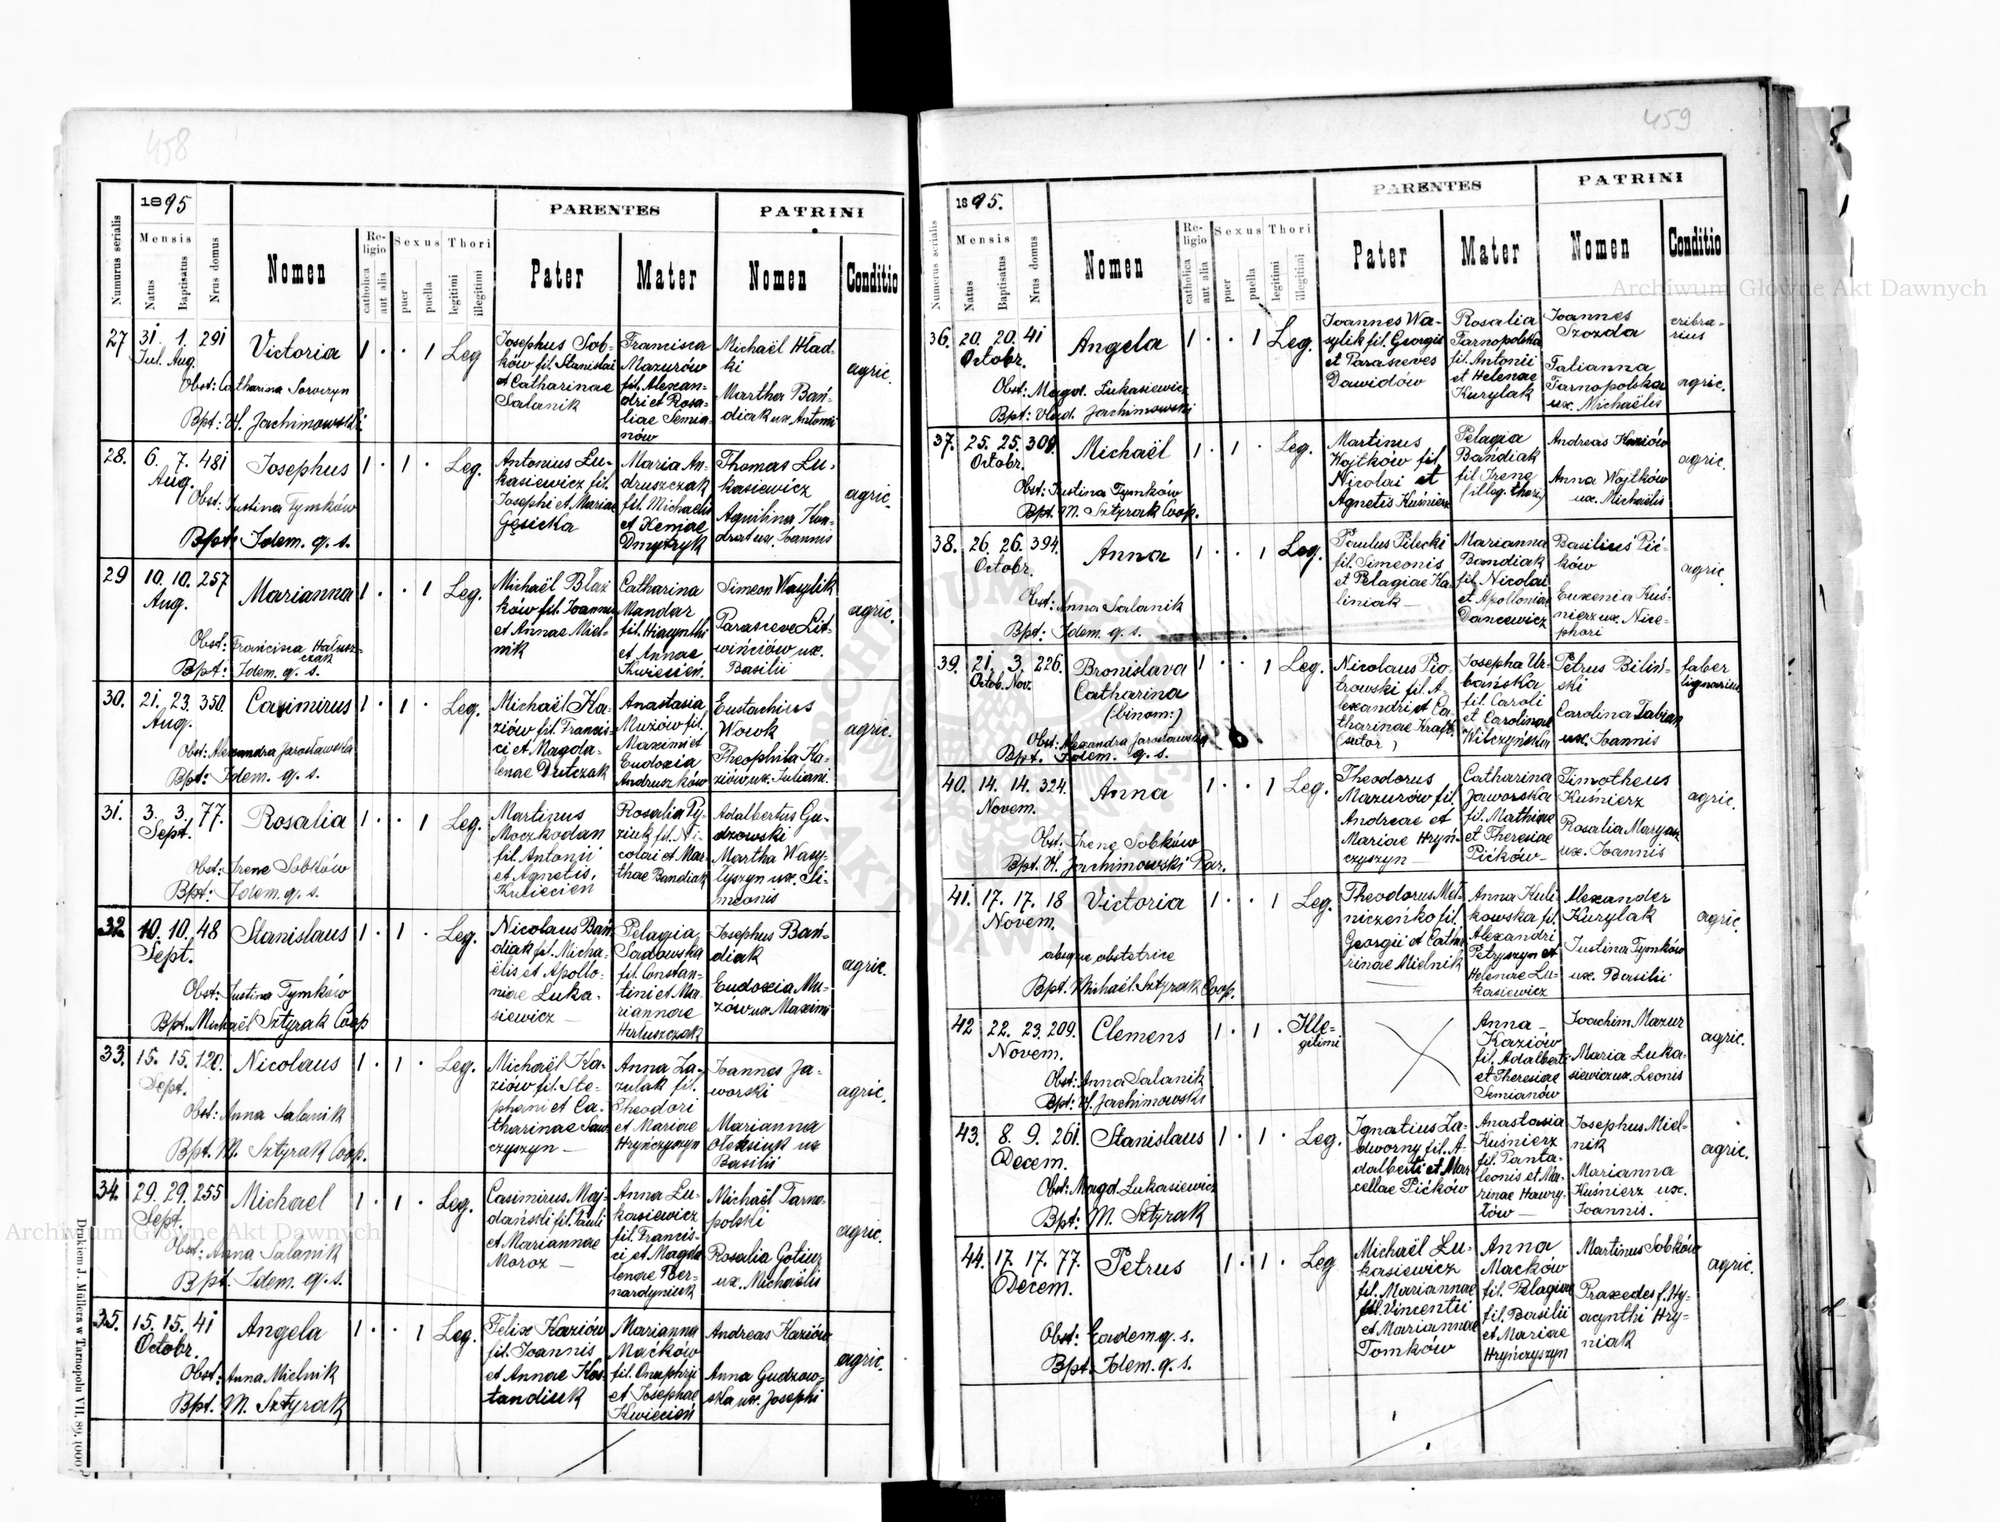 458
1895
PARENTES
PATRINI
Numurus serialis
Mensis
Natus
Baptisatus
Nrus domus
Nomen
Religio
catholica
aut alia
Sexus
puer
puella
Thori
legitimi
illegitimi
Pater
Mater
Nomen
Conditio
27
31. 1. 291
Jul. Aug.
Victoria
1 · · 1 Leg
Obst: Catharina
Bpt: Vl. Jachimowski
Josephus Sob-
ków fil. Stanislai
et Catharinae
Salanik
Francisca
Mazurów
fil. Alexan-
dri et Rosa-
liae Semia-
nów
Michaël Hład-
ki
Martha Bań-
diak ux. Antonii
agric.
28.
6. 7. 481
Aug.
Josephus
1 · 1 · Leg.
Obst: Justina Tymków
Bpt: Idem. q. s.
Antonius Lu-
kasiewicz fil.
Josephi et Mariae
Gęsicka
Maria An-
druszczak
fil. Michaëlis
et Xeniae
Dmytryk
Thomas Lu-
kasiewicz
Aquilina Kon-
drat ux. Joannis
agric.
29
10. 10. 257
Aug.
Marianna
1 · · 1 Leg.
Obst: Francisca Hałusz-
czak
Bpt: Idem. q. s.
Michaël Błaż
ków fil. Joannis
et Annae Miel-
nik
Catharina
Mandar
fil. Hiacynthi
et Annae
Kwiecień
Simeon Wasylik
Parasceve Lit-
wińciów ux.
Basilii
agric.
30.
21. 23. 350
Aug.
Casimirus
1 · 1 · Leg.
Obst: Alexandra Jarosławska
Bpt: Idem. q. s.
Michaël Ka-
ziów fil. Francis-
ci et Magda-
lenae Dutczak
Anastasia
Muzów fil.
Maximi et
Eudoxia
Andruszków
Eustachius
Wowk
Theophila Ka-
ziów ux. Juliani
agric.
31.
3. 3. 77.
Sept.
Rosalia
1 · · 1 Leg.
Obst: Irene Sobków
Bpt: Idem q. s.
Martinus
Moczkodan
fil. Antonii
et Agnetis,
Kwiecien
Rosalia Ty-
ziuk fil. Ni-
colai et Mar-
thae Bandiak
Adalbertus Gu-
dzowski
Martha Wasy-
lyszyn ux. Si-
meonis
32.
10. 10. 48
Sept.
Stanislaus
1 · 1 · Leg.
Obst: Justina Tymków
Bpt. Michaël Sztyrak Coop
Nicolaus Bań
diak fil. Micha-
ëlis et Apollo-
niae Luka-
siewicz
Pelagia
Sadowska
fil. Constan-
tini et Ma-
riannae
Hałuszczak
Josephus Ban-
diak
Eudoxia Mu-
zów ux. Maximi
agric.
33.
15. 15. 120.
Sept.
Nicolaus
1 · 1 · Leg.
Obst: Anna Salanik
Bpt. M. Sztyrak Coop.
Michaël Ka-
ziów fil. Ste-
phani et Ca-
tharinae Saw-
czyszyn
Anna Za-
zulak fil.
Theodori
et Mariae
Hryńczyszyn
Joannes Ja-
worski
Marianna
Oleksiuk ux
Basilii
agric.
34.
29. 29. 255
Sept.
Michael
1 · 1 · Leg.
Obst: Anna Salanik
Bpt. Idem. q. s.
Casimirus Maj-
dański fil. Pauli
et Mariannae
Moroz
Anna Lu-
kasiewicz
fil. Francis-
ci et Magda
lenae Ber-
nardyniuk
Michaël Tarno-
polski
Rosalia
ux. Michaëlis
agric.
35.
15. 15. 41
Octobr.
Angela
1 · · 1 Leg.
Obst: Anna Mielnik
Bpt. M. Sztyrak
Felix Kaziów
fil. Joannis
et Annae Kos-
tandiuk
Marianna
Maćków
fil. Onuphrii
et Josephae
Kwiecień
Andreas Kaziów
Anna Gudzow-
ska ux. Josephi
agric.
Drukiem J. Müllera w Tarnopolu VII. 89. 1000
459
1895.
PARENTES
PATRINI
Numerus serialis
Mensis
Natus
Baptisatus
Nrus domus
Nomen
Religio
catholica
aut alia
Sexus
puer
puella
Thori
legitimi
illegitimi
Pater
Mater
Nomen
Conditio
36.
20. 20. 41
Octobr.
Angela
1 · · 1 Leg.
Obst: Magd. Lukasiewicz
Bpt: Vlad. Jachimowski
Joannes Wa-
sylik fil. Georgii
et Parasceves
Dawidów
Rosalia
Tarnopolska
fil. Antonii
et Helenae
Kurylak
Joannes
Szozda
Talianna
Tarnopolska
ux. Michaëlis
cribra-
rius
agric.
37.
25. 25. 309.
Octobr.
Michaël
1 · 1 · Leg.
Obst: Justina Tymków
Bpt. M. Sztyrak Coop.
Martinus
Wojtków fil
Nicolai et
Agnetis Kuśnierz
Pelagia
Bańdiak
fil Irene
(illeg. thori)
Andreas Kaziów
Anna Wojtków
ux. Michaëlis
agric.
38.
26. 26. 394.
Octobr.
Anna
1 · · 1 Leg.
Obst: Anna Salanik
Bpt: Idem q. s.
Paulus Pilecki
fil. Simeonis
et Pelagiae Ka-
liniak
Marianna
Bandiak
fil. Nicolai
et Apolloniae
Dancewicz
Basilius Pić-
ków
Euxenia Kuś-
nierz ux. Nice-
phori
agric.
39.
21. 3. 226.
Octob. Nov.
Bronislava
Catharina
(binom:)
1 · · 1 Leg.
Obst: Alexandra Jarosławska
Bpt: Idem. q. s.
Nicolaus Pio-
trowski fil. A-
lexandri et Ca-
tharinae Kraft
(sutor)
Josepha Ur-
bańska
fil. Caroli
et Carolinae
Wilczyńska
Petrus Biliń-
ski
Carolina Fabian
ux. Joannis
faber
lignarius
40.
14. 14. 324.
Novem.
Anna
1 · · 1 Leg.
Obst: Irene Sobków
Bpt. Vl. Jachimowski Par.
Theodorus
Mazurów fil.
Andreae et
Mariae Hryń-
czyszyn
Catharina
Jaworska
fil. Mathiae
et Theresiae
Pićków
Timotheus
Kuśnierz
Rosalia Maryan
ux. Joannis
agric.
41.
17. 17. 18
Novem.
Victoria
1 · · 1 Leg.
absque obstetrice
Bpt. Michaël Sztyrak Coop.
Theodorus Mel-
niczeńko fil.
Georgii et Catha
rinae Mielnik
Anna Kuli-
kowska fil.
Alexandri
Petryszyn et
Helenae Lu-
kasiewicz
Alexander
Kurylak
Justina Tymków
ux. Basilii
agric.
42
22. 23. 209.
Novem.
Clemens
1 · 1 · Ille-
gitimi
Obst: Anna Salanik
Bpt: Vl. Jachimowski
Anna
Kaziów
fil. Adalberti
et Theresiae
Semianów
Joachim Mazur
Maria Luka-
siewicz ux. Leonis
agric.
43.
8. 9. 261.
Decem.
Stanislaus
1 · 1 · Leg.
Obst: Magd. Lukasiewicz
Bpt: M. Sztyrak
Ignatius Za-
dworny fil. A-
dalberti et Mar
cellae Pićków
Anastasia
Kuśnierz
fil. Panta-
leonis et Ma-
rinae Hawry-
lów
Josephus Miel-
nik
Marianna
Kuśnierz ux.
Joannis.
agric.
44.
17. 17. 77.
Decem.
Petrus
1 · 1 · Leg
Obst: Eadem q. s.
Bpt. Idem. q. s.
Michaël Lu-
kasiewicz
fil. Mariannae
fil. Vincentii
et Mariannae
Tomków
Anna
Maćków
fil. Pelagiae
fil. Basilii
et Mariae
Hryńczyszyn
Martinus Sobków
Praxedes f. Hy-
acynthi Hry-
niak
agric.
Archiwum Główne Akt Dawnych
Archiwum Główne Akt Dawnych